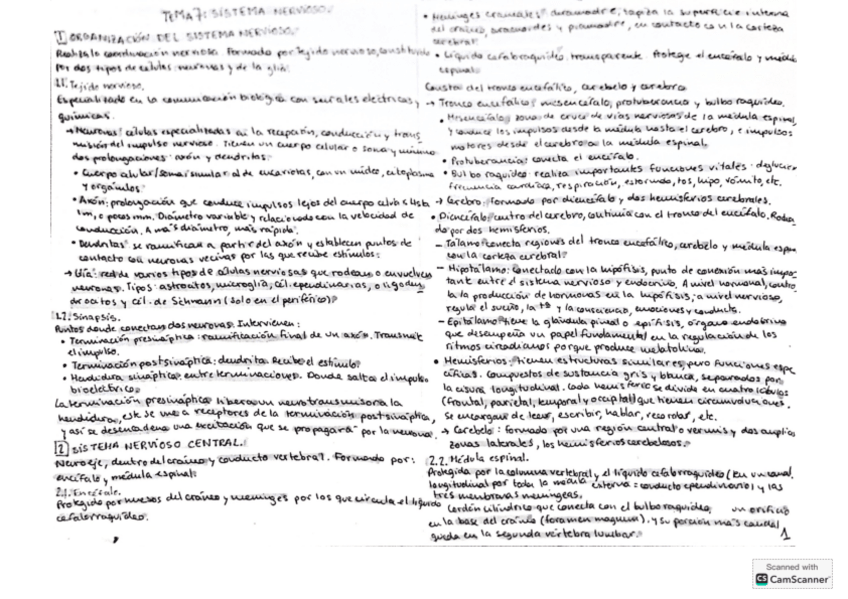 TEMA 7: SISTEMA NERVIOSO.
1 ORGANIZACIÓN DEL SISTEMA NERVIOSO.
Realiza la coordinación nerviosa. Formado por tejido nervioso, constituido
por dos tipos de células: neuronas y de la glía.
1.1. Tejido nervioso.
Especializado en la comunicación biológica con señales eléctricas y
químicas.
→ Neuronas: células especializadas en la recepción, conducción y trans
misión del impulso nervioso. Tienen un cuerpo celular o soma y mínimo
dos prolongaciones: axón y dendritas.
• Cuerpo celular/soma: similar al de eucariotas, con un núcleo, citoplasma
y orgánulos.
• Axón: prolongación que conduce impulsos lejos del cuerpo celular. Hasta
1m, o pocos mm. Diámetro variable y relacionado con la velocidad de
conducción. A más diámetro, más rápido.
• Dendritas: se ramifica a partir del axón y establecen puntos de
contacto con neuronas vecinas por las que recibe estímulos.
→ Glía: red de varios tipos de células nerviosas que rodean o envuelven
neuronas. Tipos: astrocitos, microglía, cél. ependimarias, oligoden
drocitos y cél. de Schwann (solo en el periférico).
1.2. Sinapsis.
Puntos donde conectan dos neuronas. Intervienen:
• Terminación presináptica: ramificación final de un axón. Transmite
el impulso.
• Terminación postsináptica: dendrita. Recibe el estímulo.
• Hendidura sináptica: entre terminaciones. Donde salta el impulso
bioeléctrico.
La terminación presináptica libera un neurotransmisor a la
hendidura, este se une a receptores de la terminación postsináptica,
y así se desencadena una excitación que se propagará por la neurona.
2 SISTEMA NERVIOSO CENTRAL.
Neuroeje, dentro del cráneo y conducto vertebral. Formado por:
encéfalo y médula espinal.
2.1. Encéfalo.
Protegido por huesos del cráneo y meninges por los que circula el líquido
cefalorraquídeo.
• Meninges craneales: duramadre, tapiza la superficie interna
del cráneo, aracnoides y piamadre, en contacto con la corteza
cerebral.
• Líquido cefalorraquídeo: transparente. Protege el encéfalo y médula
espinal.
Consta del tronco encefálico, cerebelo y cerebro
→ Tronco encefálico: mesencéfalo, protuberancia y bulbo raquídeo.
• Mesencéfalo: zona de cruce de vías nerviosas de la médula espinal,
y conduce los impulsos desde la médula hasta el cerebro, e impulsos
motores desde el cerebro a la médula espinal.
• Protuberancia: conecta el encéfalo.
• Bulbo raquídeo: realiza importantes funciones vitales: deglución
frecuencia cardíaca, respiración, estornudo, tos, hipo, vómito, etc.
→ Cerebro: formado por diencéfalo y dos hemisferios cerebrales.
• Diencéfalo: centro del cerebro, continua con el tronco del encéfalo. Rodea
do por dos hemisferios.
- Tálamo: conecta regiones del tronco encefálico, cerebelo y médula espinal
con la corteza cerebral.
- Hipotálamo: conectado con la hipófisis, punto de conexión más impor
tante entre el sistema nervioso y endocrino. A nivel hormonal, contro
la la producción de hormonas en la hipófisis; a nivel nervioso,
regula el sueño, la tª y la consciencia, emociones y conducta.
- Epitálamo: tiene la glándula pineal o epífisis, órgano endocrino
que desempeña un papel fundamental en la regulación de los
ritmos circadianos porque produce melatonina.
• Hemisferios: tienen estructuras similares, pero funciones espe
cíficas. Compuestos de sustancia gris y blanca, separados por
la cisura longitudinal. Cada hemisferio se divide en cuatro lóbulos
(frontal, parietal, temporal y occipital) que tienen circunvoluciones.
Se encargan de leer, escribir, hablar, razonar, etc.
→ Cerebelo: formado por una región central o vermis y dos amplias
zonas laterales, los hemisferios cerebelosos.
2.2. Médula espinal.
Protegida por la columna vertebral y el líquido cefalorraquídeo (en un canal
longitudinal por toda la médula externa: conducto ependimario) y las
tres membranas meníngeas.
Cordón cilíndrico que conecta con el bulbo raquídeo, un orificio
en la base del cráneo (foramen magnum), y su porción más caudal
queda en la segunda vértebra lumbar.
1
Scanned with
CS CamScanner